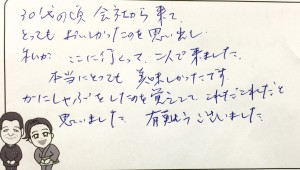 30代の頃 会社から来て、
とってもおいしかったのを思い出し
私が ここに行くって、二人で来ました。
本当にとても 美味しかったです。
かにしゃぶをしたのを覚えてて、これだこれだと
思いました。 有難うございました。